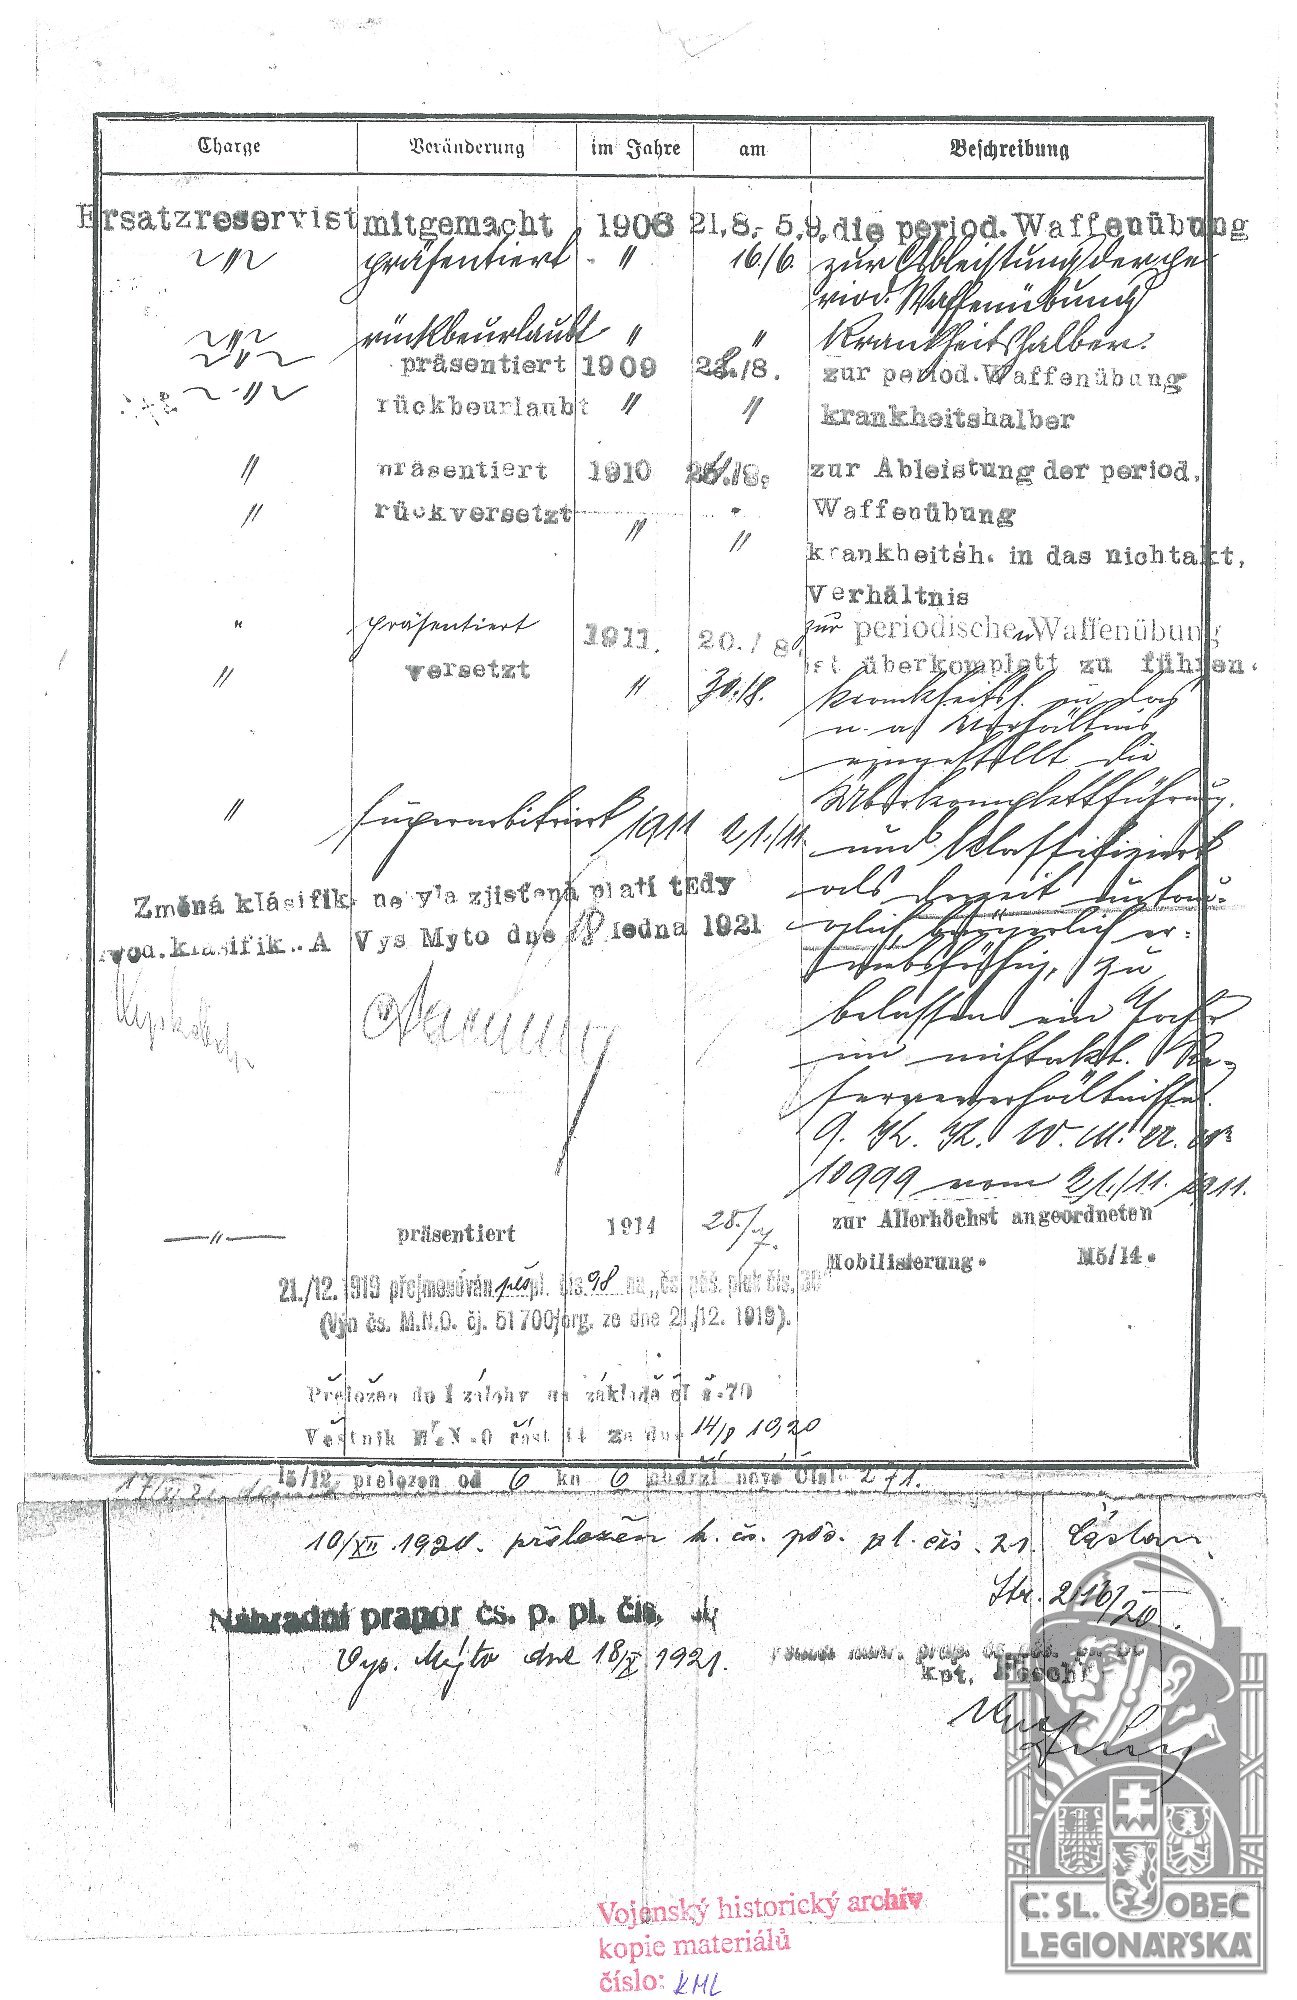 Charge Veränderung im Jahre am Beschreibung
Ersatzreservist mitgemacht 1908 21.8.- 5.9. die period. Waffenübung
~"~ präsentiert " 16./6. zur Ableistung der pe-
riod. Waffenübung
~"~ rückbeurlaubt " " Krankheitshalber.
~"~ präsentiert 1909 /8. zur period. Waffenübung
~"~ rückbeurlaubt " " krankheitshalber
" präsentiert 1910 zur Ableistung der period.
" rückversetzt Waffenübung
" " krankheitsh. in das nichtakt.
Verhältnis
" präsentiert 1911. 20./8. zur periodischen Waffenübung
" versetzt ist überkomplett zu führen.
" 30./8. krankheitsh. in das
n. a. Verhältnis
eingestellt die
Überkomplettführung.
" superarbitriert 1911 21./11. und klassifiziert
als derzeit untau-
glich, bürgerlich er-
werbsfähig, zu
belassen ein Jahr
im nichtakt. Re-
serveverhältnisse.
K. K. W. M. A.
10999 vom 21./11. 1911.
Změná klásifik. nebyla zjistena platí tEdy
vod. klasifik.. A Vys Myto dne 18 ledna 1921
—"— präsentiert 1914 28./7. zur Allerhöchst angeordneten
Mobilisierung. M5/14.
21./12. 1919 přejmenován pěš pl. čís. 98 na „čs. pěš. pluk čís. 30"
(Vyn čs. M.N.O. čj. 51700/org. ze dne 21./12. 1919).
Přeložen do I zálohy na základě čl 70
Věstník M.N.O část 44 ze dne 14/8 1920
15/12. přelozen od 6 kn 6 obdrží nové číslo 271.
10/XII. 1920. přeložen k. čs. pěš. pl. čís. 21. Čáslav.
Str. 2116/20.
Náhradní prapor čs. p. pl. čís.
Vys. Mýto dne 18/X 1921.
kpt.
Vojenský historický archiv
kopie materiálů
číslo: KML
Č.SL. OBEC
LEGIONÁŘSKÁ